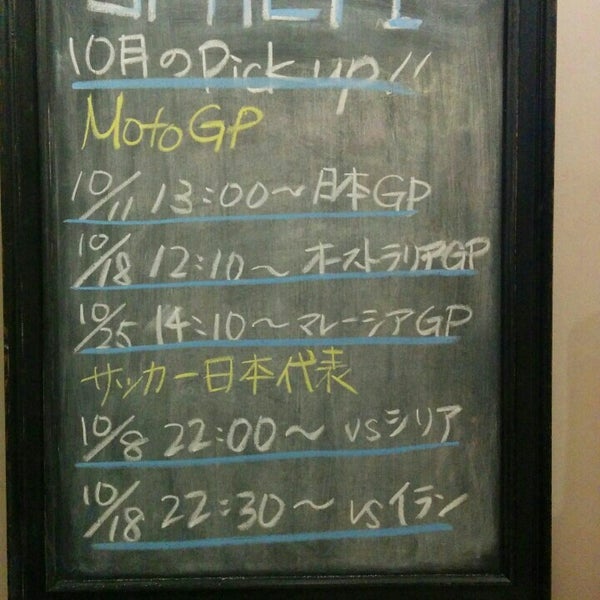 10月のPick up!!
MotoGP
10/11 13:00～日本GP
10/18 12:10～オーストラリアGP
10/25 14:10～マレーシアGP
サッカー日本代表
10/8 22:00～ vsシリア
10/18 22:30～ vsイラン